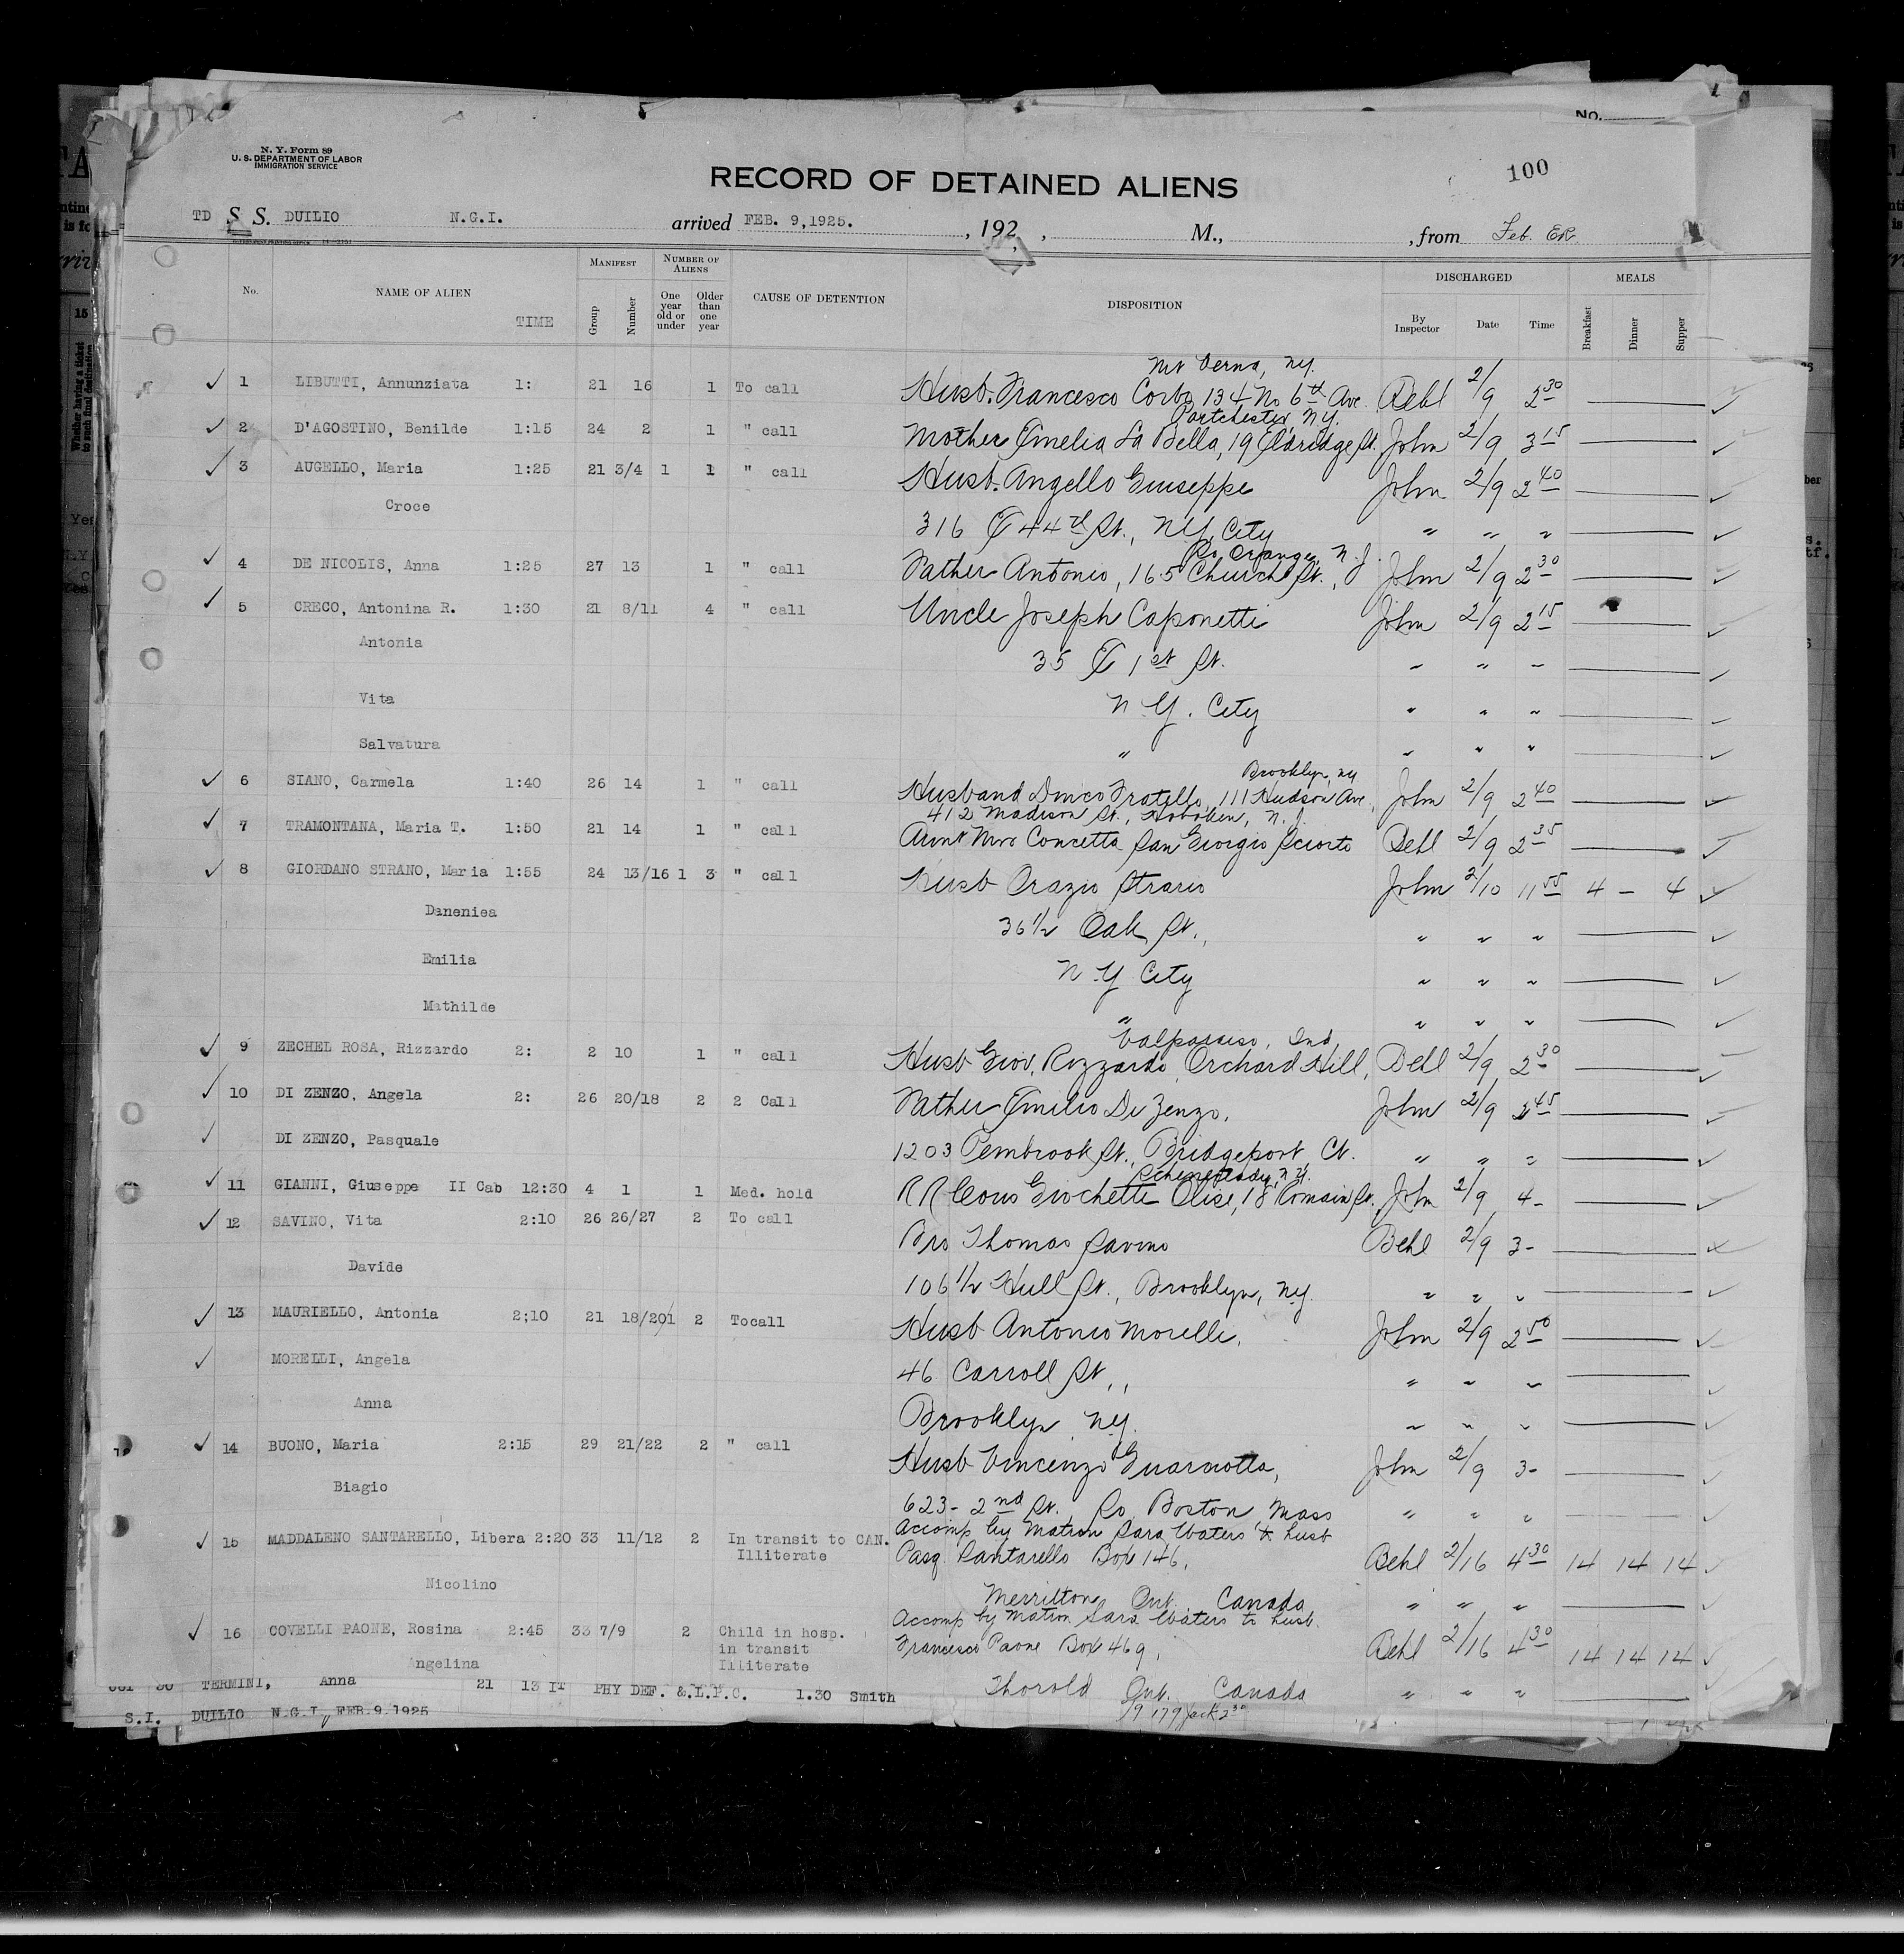 No.
N. Y. Form 89
U. S. DEPARTMENT OF LABOR
IMMIGRATION SERVICE
100
RECORD OF DETAINED ALIENS
TD S. S. DUILIO N.G.I. arrived FEB. 9,1925. , 192 , M., , from Feb. ER
No. NAME OF ALIEN TIME MANIFEST Group Number NUMBER OF ALIENS One year old or under Older than one year CAUSE OF DETENTION DISPOSITION DISCHARGED By Inspector Date Time MEALS Breakfast Dinner Supper
Mt Verna, N.Y.
1 LIBUTTI, Annunziata 1: 21 16 1 To call Husb. Francesco Corbo 134 No 6th Ave. Behl 2/9 2 30
Portchester, N.Y.
2 D'AGOSTINO, Benilde 1:15 24 2 1 " call Mother Emelia La Bella, 19 Eldridge St. John 2/9 3 15
3 AUGELLO, Maria 1:25 21 3/4 1 1 " call Husb. Angello Giuseppe John 2/9 2 40
Croce 316 E 44th St., N.Y. City " " "
So. Orange, N.J.
4 DE NICOLIS, Anna 1:25 27 13 1 " call Father Antonio, 165 Church St., John 2/9 2 30
5 CRECO, Antonina R. 1:30 21 8/11 4 " call Uncle Joseph Caponetti John 2/9 2 15
Antonia 35 E 1st St. " " "
Vita N.Y. City " " "
Salvatura " " " "
Brooklyn, N.Y.
6 SIANO, Carmela 1:40 26 14 1 " call Husband Fratello, 111 Hudson Ave. John 2/9 2 40
412 Madison St., Hoboken, N.J.
7 TRAMONTANA, Maria T. 1:50 21 14 1 " call Aunt Mrs Concetta San Giorgio Sciorto Behl 2/9 2 35
8 GIORDANO STRANO, Maria 1:55 24 13/16 1 3 " call Husb Orazio Strano John 2/10 11 55 4 - 4
Daneniea 36 1/2 Oak St., " " "
Emilia N.Y City " " "
Mathilde " " " "
Valparaiso, Ind
9 ZECHEL ROSA, Rizzardo 2: 2 10 1 " call Husb Giov. Rizzardo Orchard Hill, Behl 2/9 2 30
10 DI ZENZO, Angela 2: 26 20/18 2 2 Call Father Emilio Di Zenzo, John 2/9 2 45
DI ZENZO, Pasquale 1203 Pembrook St., Bridgeport Ct. " " "
Schenectady, N.Y.
11 GIANNI, Giuseppe II Cab 12:30 4 1 1 Med. hold RR Cous Giochette Olise, 18 Romain St. John 2/9 4-
12 SAVINO, Vita 2:10 26 26/27 2 To call Bro Thomas Savino Behl 2/9 3-
Davide 106 1/2 Hull St., Brooklyn, N.Y. " " "
13 MAURIELLO, Antonia 2;10 21 18/20 1 2 Tocall Husb Antonio Morelli, John 2/9 2 50
MORELLI, Angela 46 Carroll St., " " "
Anna Brooklyn N.Y. " " "
14 BUONO, Maria 2:15 29 21/22 2 " call Husb Vincenzo Guarnotta, John 2/9 3-
Biagio 623- 2nd St., So. Boston Mass " " "
Accomp by Matron Sara Waters to husb
15 MADDALENO SANTARELLO, Libera 2:20 33 11/12 2 In transit to CAN. Illiterate Pasq. Santarello Box 146, Behl 2/16 4 30 14 14 14
Nicolino Merritton Ont. Canada " " "
Accomp by Matron Sara Waters to husb.
16 COVELLI PAONE, Rosina 2:45 33 7/9 2 Child in hosp. in transit Illiterate Francesco Paone Box 469, Behl 2/16 4 30 14 14 14
Angelina Thorold Ont. Canada " " "
TERMINI, Anna 21 13 IT PHY DEF. & L.P.C. 1.30 Smith
S.I. DUILIO N.G.I. FEB.9.1925